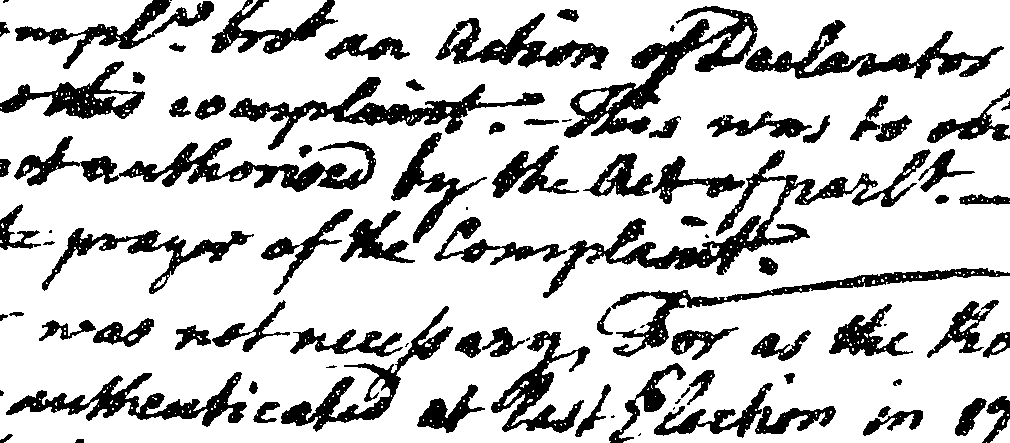 compl.r brot an Action of Declarator
this complaint. – This was to
not authorised by the Act of parlt. –
the prayer of the Complaint.
was not necessary, For as the
authenticated at last Election in